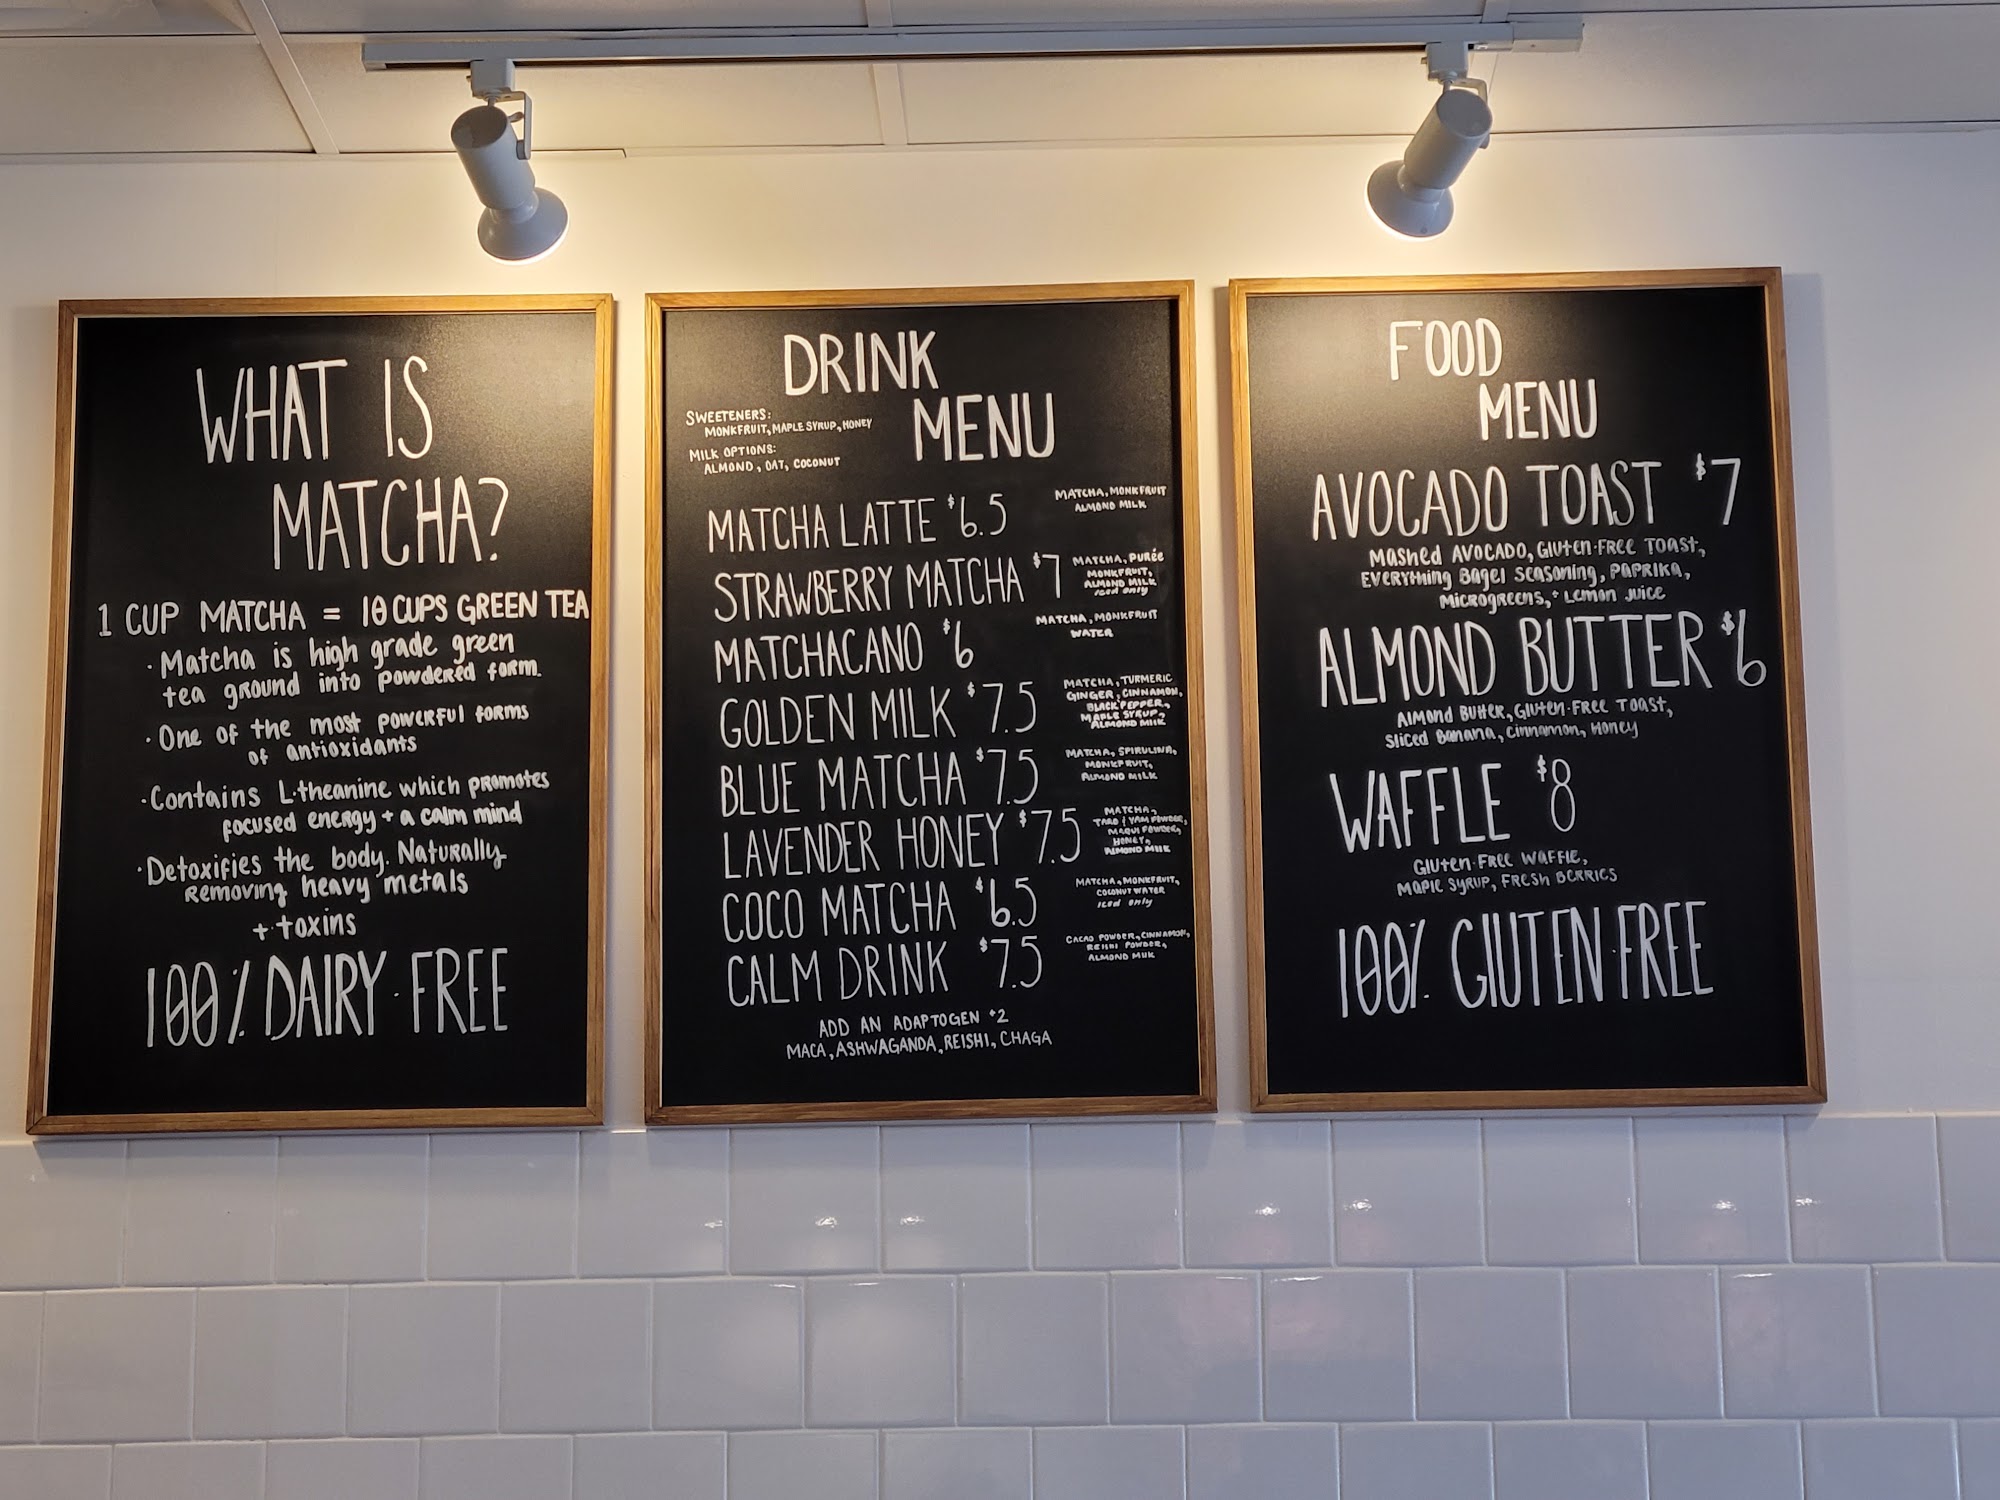 WHAT IS
MATCHA?
1 CUP MATCHA = 10 CUPS GREEN TEA
· Matcha is high grade green
tea ground into powdered form.
· One of the most powerful forms
of antioxidants
· Contains L-theanine which promotes
focused energy + a calm mind
· Detoxifies the body. Naturally
removing heavy metals
+ toxins
100% DAIRY-FREE
DRINK
MENU
SWEETENERS:
MONKFRUIT, MAPLE SYRUP, HONEY
MILK OPTIONS:
ALMOND, OAT, COCONUT
MATCHA LATTE $6.5
MATCHA, MONKFRUIT
ALMOND MILK
STRAWBERRY MATCHA $7
MATCHA, PURÉE
MONKFRUIT,
ALMOND MILK
iced only
MATCHACANO $6
MATCHA, MONKFRUIT
WATER
GOLDEN MILK $7.5
MATCHA, TURMERIC
GINGER, CINNAMON,
BLACK PEPPER,
MAPLE SYRUP,
ALMOND MILK
BLUE MATCHA $7.5
MATCHA, SPIRULINA,
MONKFRUIT,
ALMOND MILK
LAVENDER HONEY $7.5
MATCHA,
TARO + YAM POWDER,
MAQUI POWDER,
HONEY,
ALMOND MILK
COCO MATCHA $6.5
MATCHA, MONKFRUIT,
COCONUT WATER
iced only
CALM DRINK $7.5
CACAO POWDER, CINNAMON,
REISHI POWDER,
ALMOND MILK
ADD AN ADAPTOGEN $2
MACA, ASHWAGANDA, REISHI, CHAGA
FOOD
MENU
AVOCADO TOAST $7
MASHED AVOCADO, GLUTEN-FREE TOAST,
EVERYTHING BAGEL SEASONING, PAPRIKA,
MICROGREENS, + LEMON JUICE
ALMOND BUTTER $6
ALMOND BUTTER, GLUTEN-FREE TOAST,
SLICED BANANA, CINNAMON, HONEY
WAFFLE $8
GLUTEN-FREE WAFFLE,
MAPLE SYRUP, FRESH BERRIES
100% GLUTEN-FREE